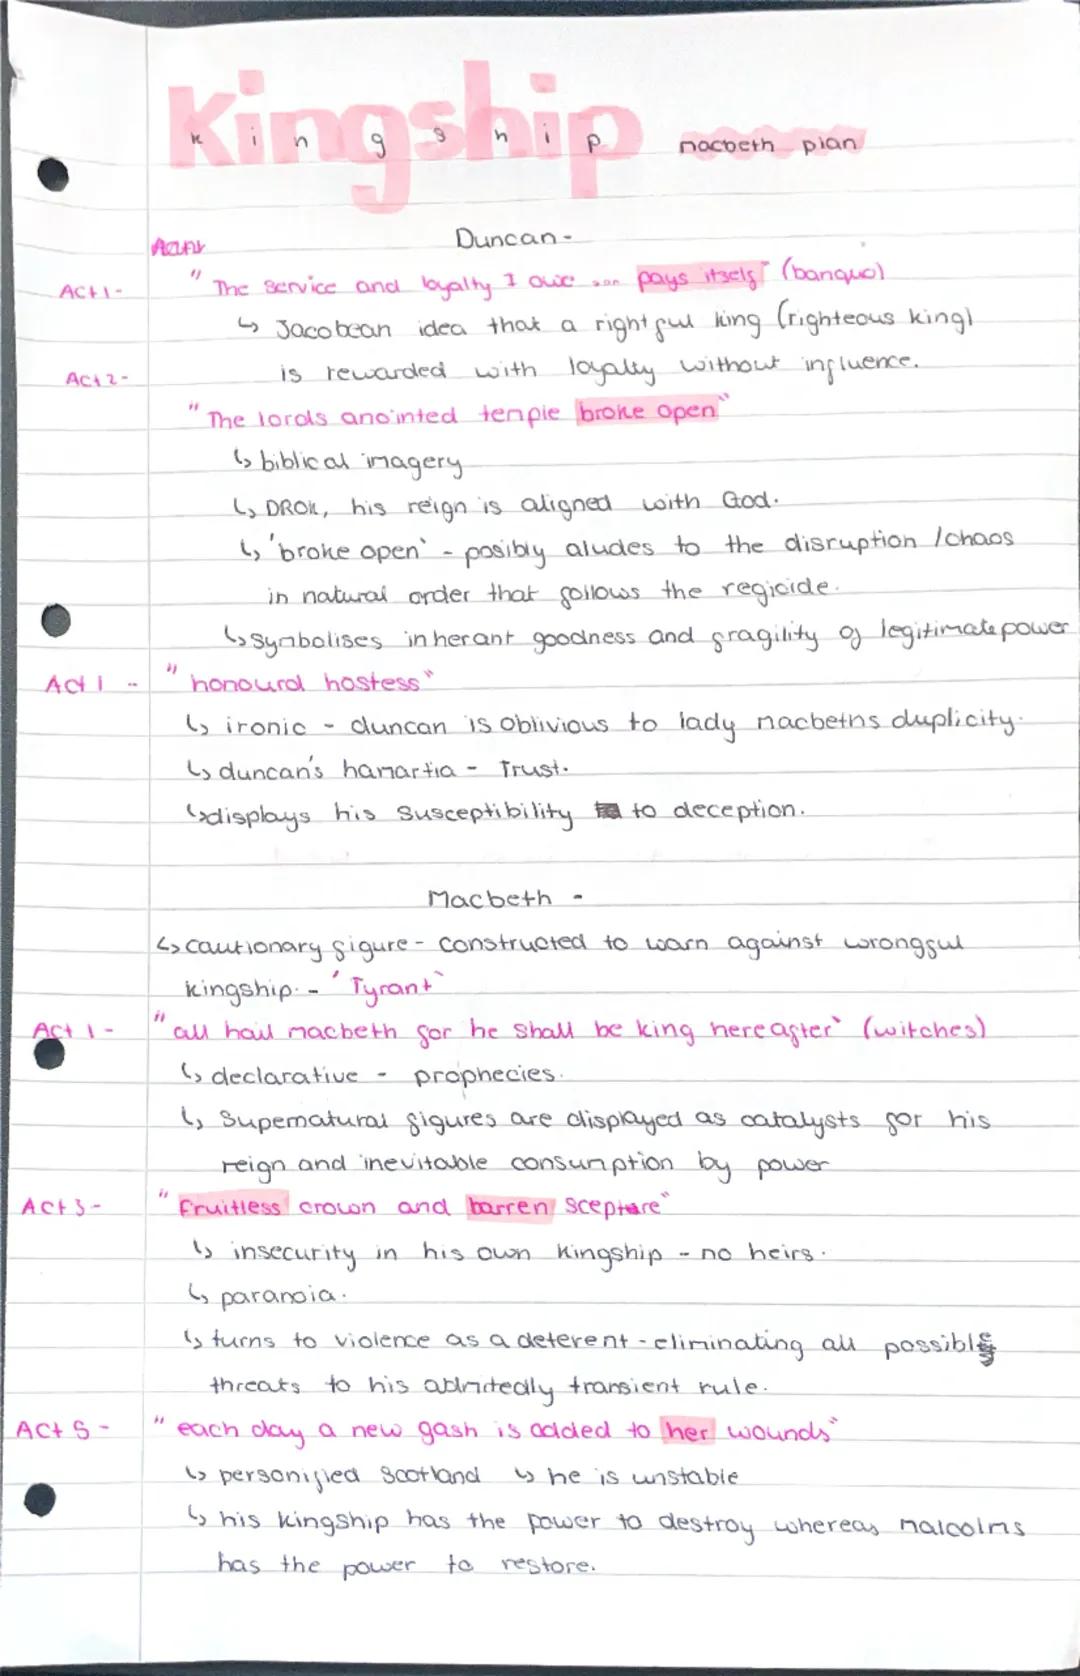 Kingship
k i n g s h i p macbeth plan
Duncan -
Act 1 - "The service and loyalty I owe ... pays itself" (banquo)
↳ Jacobean idea that a rightful king (righteous king)
Act 2 - is rewarded with loyalty without influence.
"The lords anointed temple broke open"
↳ biblical imagery
↳ DROK, his reign is aligned with God.
↳ 'broke open' - posibly aludes to the disruption / chaos
in natural order that follows the regicide.
↳ symbolises inherant goodness and fragility of legitimate power
Act 1 - "honourd hostess"
↳ ironic - duncan is oblivious to lady macbeths duplicity.
↳ duncan's hamartia - Trust.
↳ displays his susceptibility to deception.
Macbeth -
↳ cautionary figure - constructed to warn against wrongful
kingship. - 'Tyrant'
Act 1 - "all hail macbeth for he shall be king hereafter" (witches)
↳ declarative - prophecies.
↳ Supernatural figures are displayed as catalysts for his
reign and inevitable consumption by power
Act 3 - "Fruitless crown and barren Sceptare"
↳ insecurity in his own kingship - no heirs.
↳ paranoia.
↳ turns to violence as a deterent - eliminating all possible
threats to his admitedly transient rule.
Act 5 - "each day a new gash is added to her wounds"
↳ personified Scotland ↳ he is unstable
↳ his kingship has the power to destroy whereas malcolms
has the power to restore.